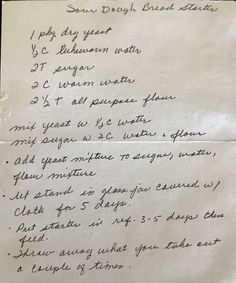 Sour Dough Bread Starter
1 pkg dry yeast
½ C lukewarm water
2T sugar
2 C warm water
2½ T all purpose flour
mix yeast w ½C water
mix sugar w 2C water & flour
• add yeast mixture to sugar, water,
flour mixture
• Let stand in glass jar covered w/
cloth for 5 days.
• Put starter in ref. 3-5 days then
feed.
• Throw away what you take out
a couple of times.